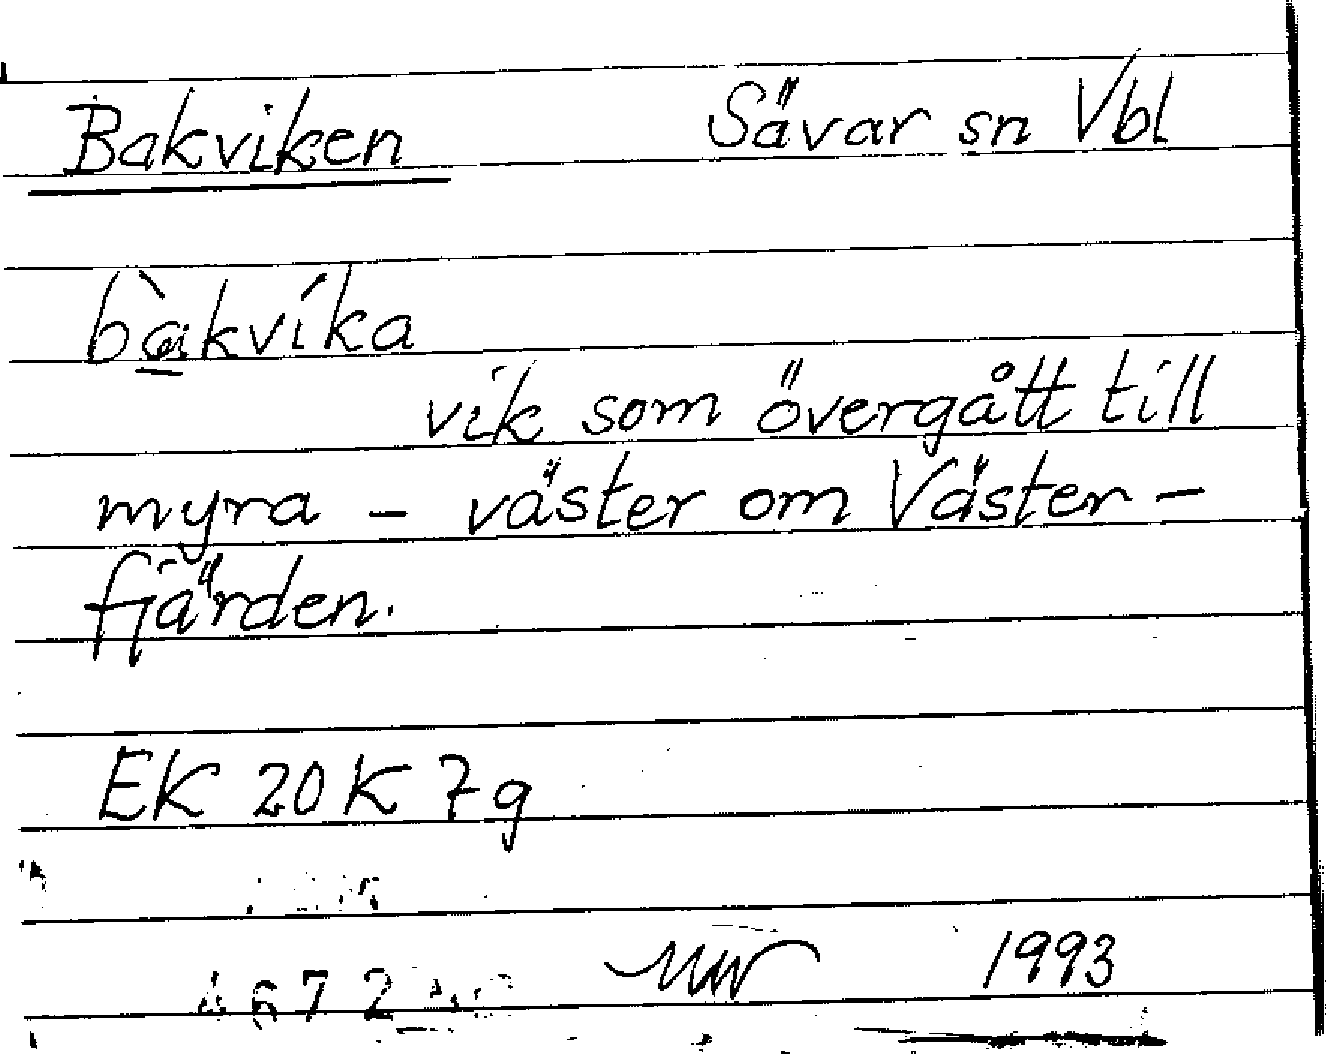 Bakviken Sävar sn Vbl
bà̱kvíka
vik som övergått till
myra - väster om Väster-
fjärden.
EK 20K 7g
1993
672